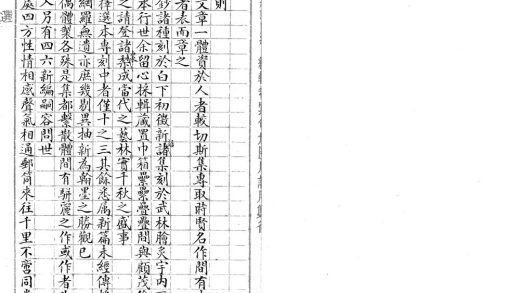 則
文章一體資於人者較切斯集專取時賢名作間有
者表而章之
鈔諸種刻於白下初徵新諸集刻於武林膾炙宇內
本行世余留心採輯藏置巾箱纍纍疊疊問與顧茂
之請登諸梨成當代之藝林實千秋之盛事
擇選本專刻中者僅十之三其餘悉屬新篇未經傳
網羅無遺亦庶幾剔異抽新為翰墨之勝觀已
偶體製各殊是集都繫散體間有駢麗之作或作者
人另有四六新編嗣容問世
處四方性情相感聲氣相通郵筒來往千里不啻同
選